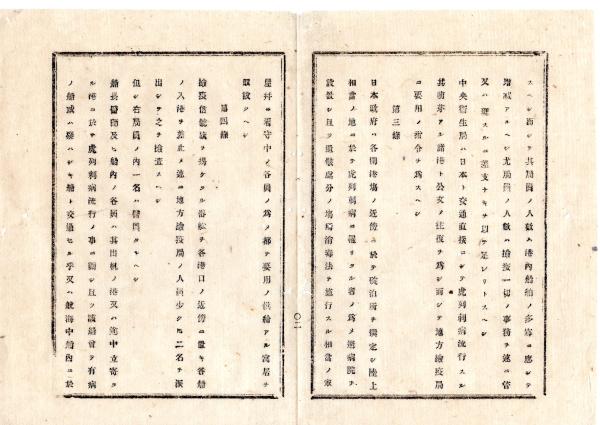 スヘシ而シテ其局員ノ人數ハ港內船舶ノ多寡ニ應シテ
增減アルヘシ尤局員ノ人數ハ檢疫一切ノ事務ヲ速ニ管
又ハ

スルニ差支ナキヲ以テ足レリトスヘシ
中央衛生局ハ日本ト交通直接ニシテ虎列剌病流行スル
其
諸港ト公文ノ往復ヲ爲シ而シテ地方檢疫局
ニ要用ノ指令ヲ爲スヘシ
第三條
日本政府ハ各開港場ノ近傍ニ於テ碇泊所ヲ撰定シ陸上
相當ノ地ニ於テ虎列剌病ニ罹リタル者ノ爲メ避病院ヲ
設置シ且ツ
處分ノ場
消毒法ヲ施行スル相當ノ家
屋幷ニ看守中ノ各員ノ爲メ都テ要用ノ供給アル寓居ヲ
設ク
ヘシ
第四條
檢疫信號旗ヲ揚ケタル
船ヲ各港口ノ近傍ニ置キ各船
ノ入港ヲ差止メ速ニ地方檢疫局ノ人員少クモ二名ヲ派
出シテ之ヲ檢査スヘシ
但シ右局員ノ內一名ハ醫員タルヘシ
船長醫師及ヒ船內ノ各員ハ其出帆ノ港又ハ途中立寄タ
ル港ニ於テ虎列剌病流行ノ事ニ關シ且ツ該船曾テ有病
ノ船或ハ
ハシキ船ト交通セル乎又ハ航海中船內ニ於